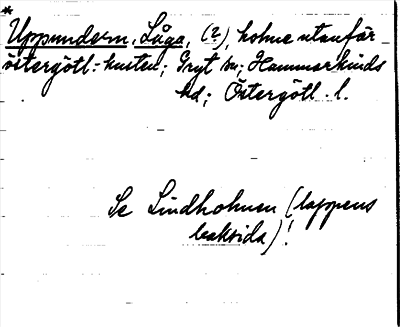 *
Uppundern, Låga, (?), holme utanför
östergötl.-kusten; Gryt sn; Hammarkinds
hd; Östergötl. l.
Se Lindholmen (lappens
baksida)!